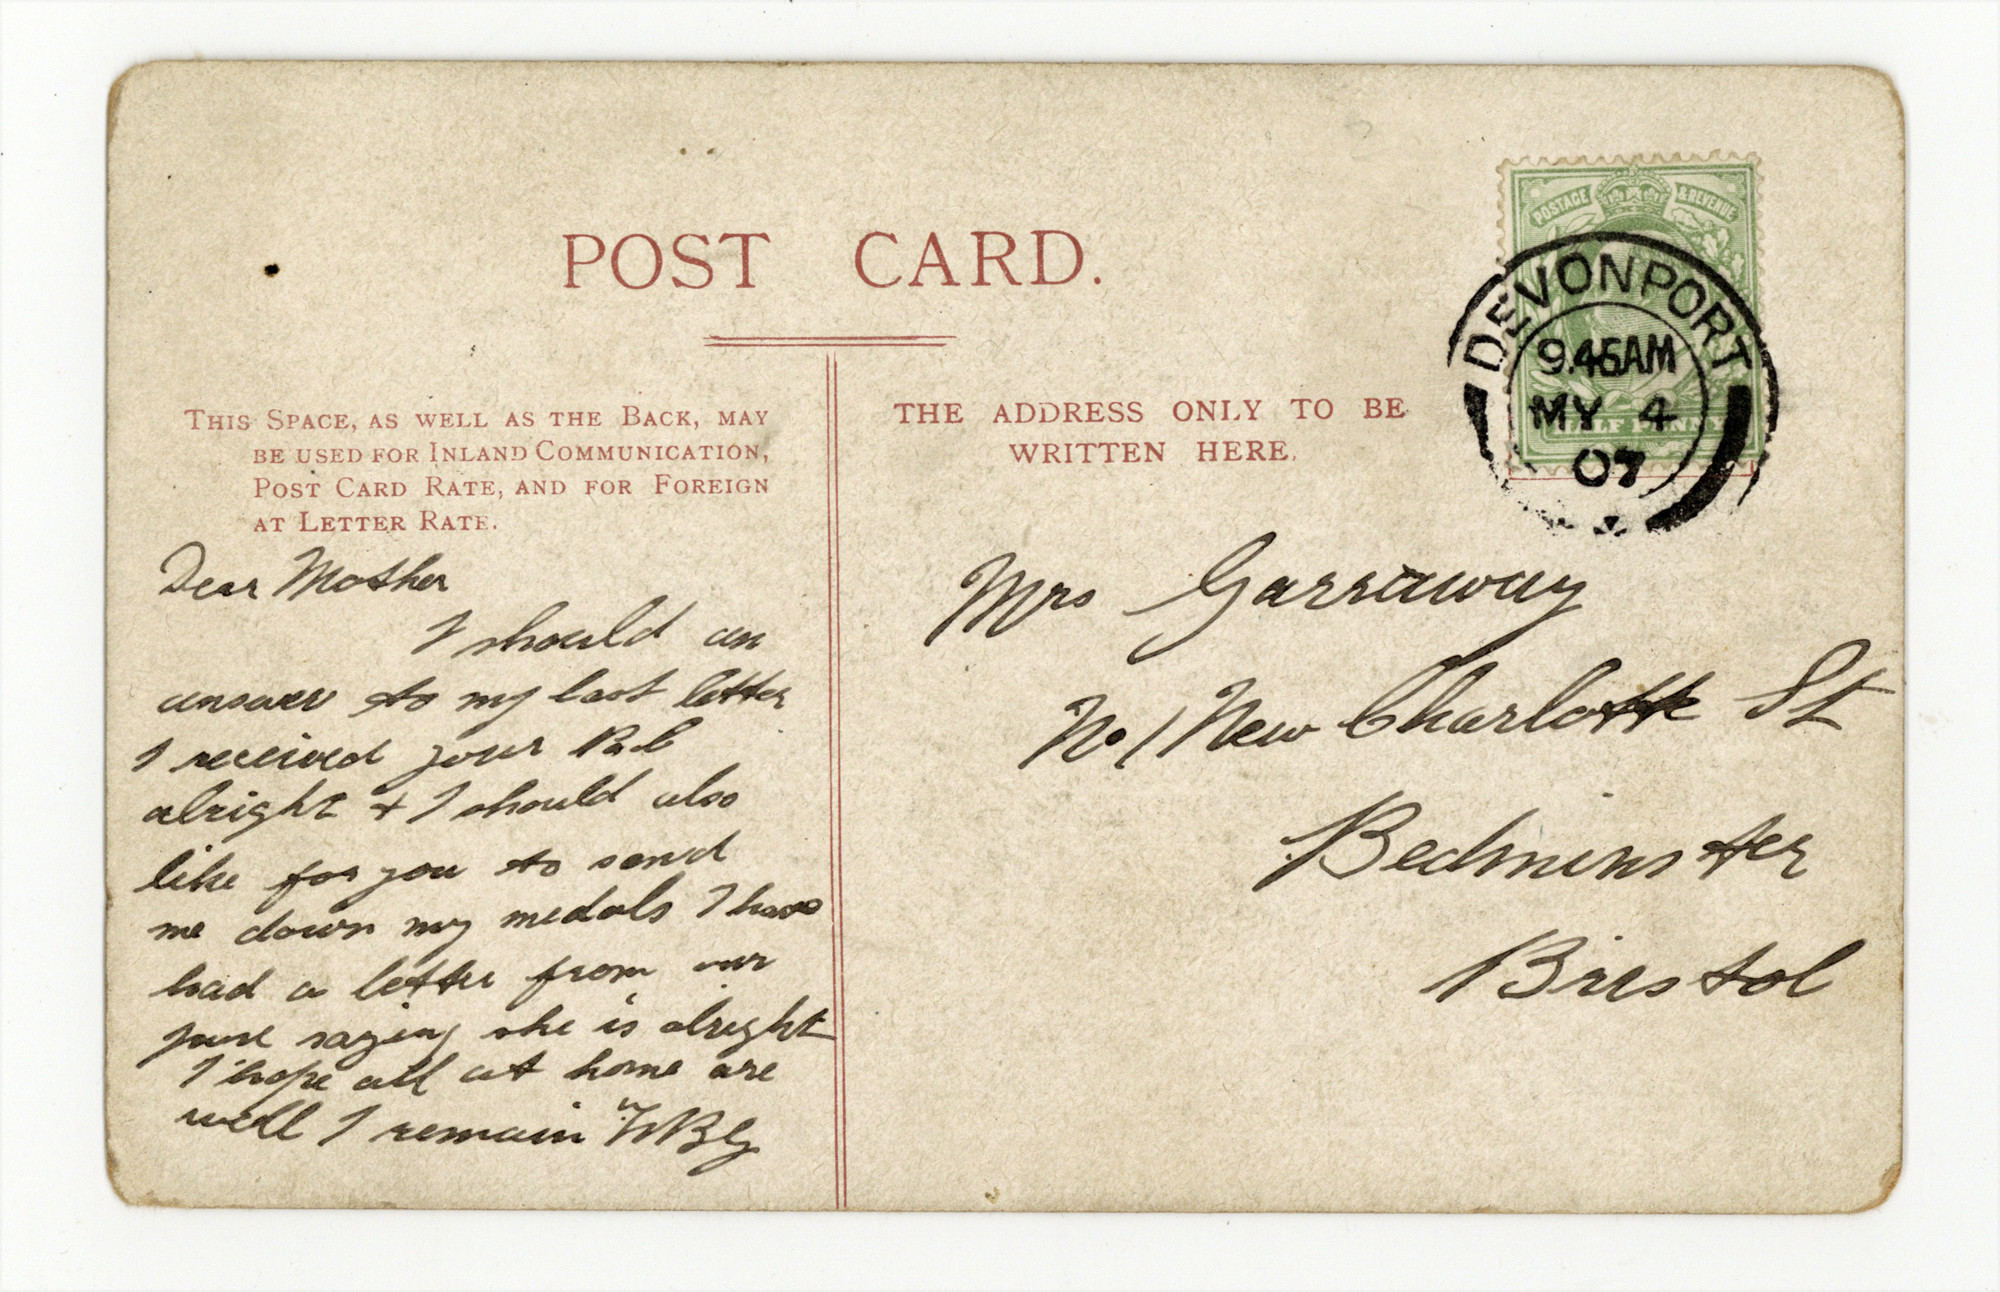 POST CARD.
THIS SPACE, AS WELL AS THE BACK, MAY
BE USED FOR INLAND COMMUNICATION,
POST CARD RATE, AND FOR FOREIGN
AT LETTER RATE.
THE ADDRESS ONLY TO BE
WRITTEN HERE.
POSTAGE & REVENUE
HALF PENNY
DEVONPORT
9.45AM
MY 4
07
Dear Mother
I should an
answer to my last letter
I received your P.C
alright & I should also
like for you to send
me down my medals I have
had a letter from our
saying she is alright
I hope all at home are
well I remain
Mrs Garraway
No 1 New Charlotte St
Bedminster
Bristol